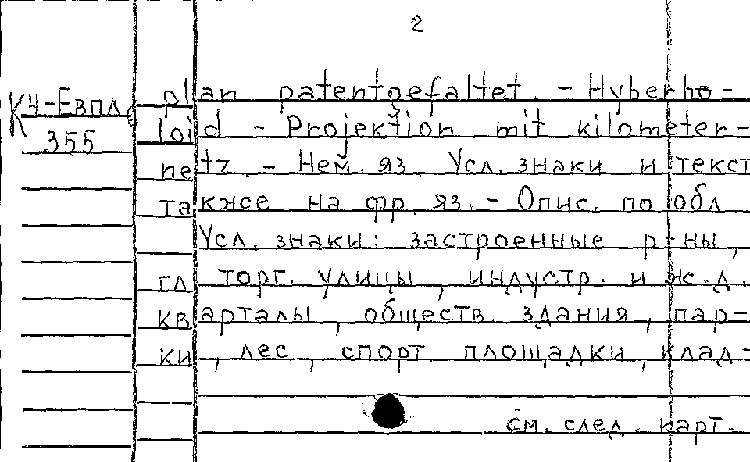 2
К4-Евпл
355
plan patentgefaltet. - Hyberbo-
loid - Projektion mit kilometer-
netz. - Нем. яз. Усл. знаки и текст
также на фр. яз. - Опис. по обл.
Усл. знаки: застроенные р-ны,
гл. торг. улицы, индустр. и ж.-д.
кварталы, обществ. здания, пар-
ки, лес, спорт. площадки, клад-
см. след. карт.